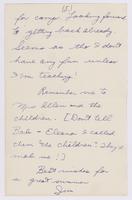 (5)
for camp. Looking forward
to getting back already.
Seems as tho I don't
have any fun unless
I'm teaching!
Remember me to
Mrs Allen and the
children. (Don't tell
Bab - Eleanor I called
them "the children". They'd
mob me!)
Best wishes for
a great summer
Jim